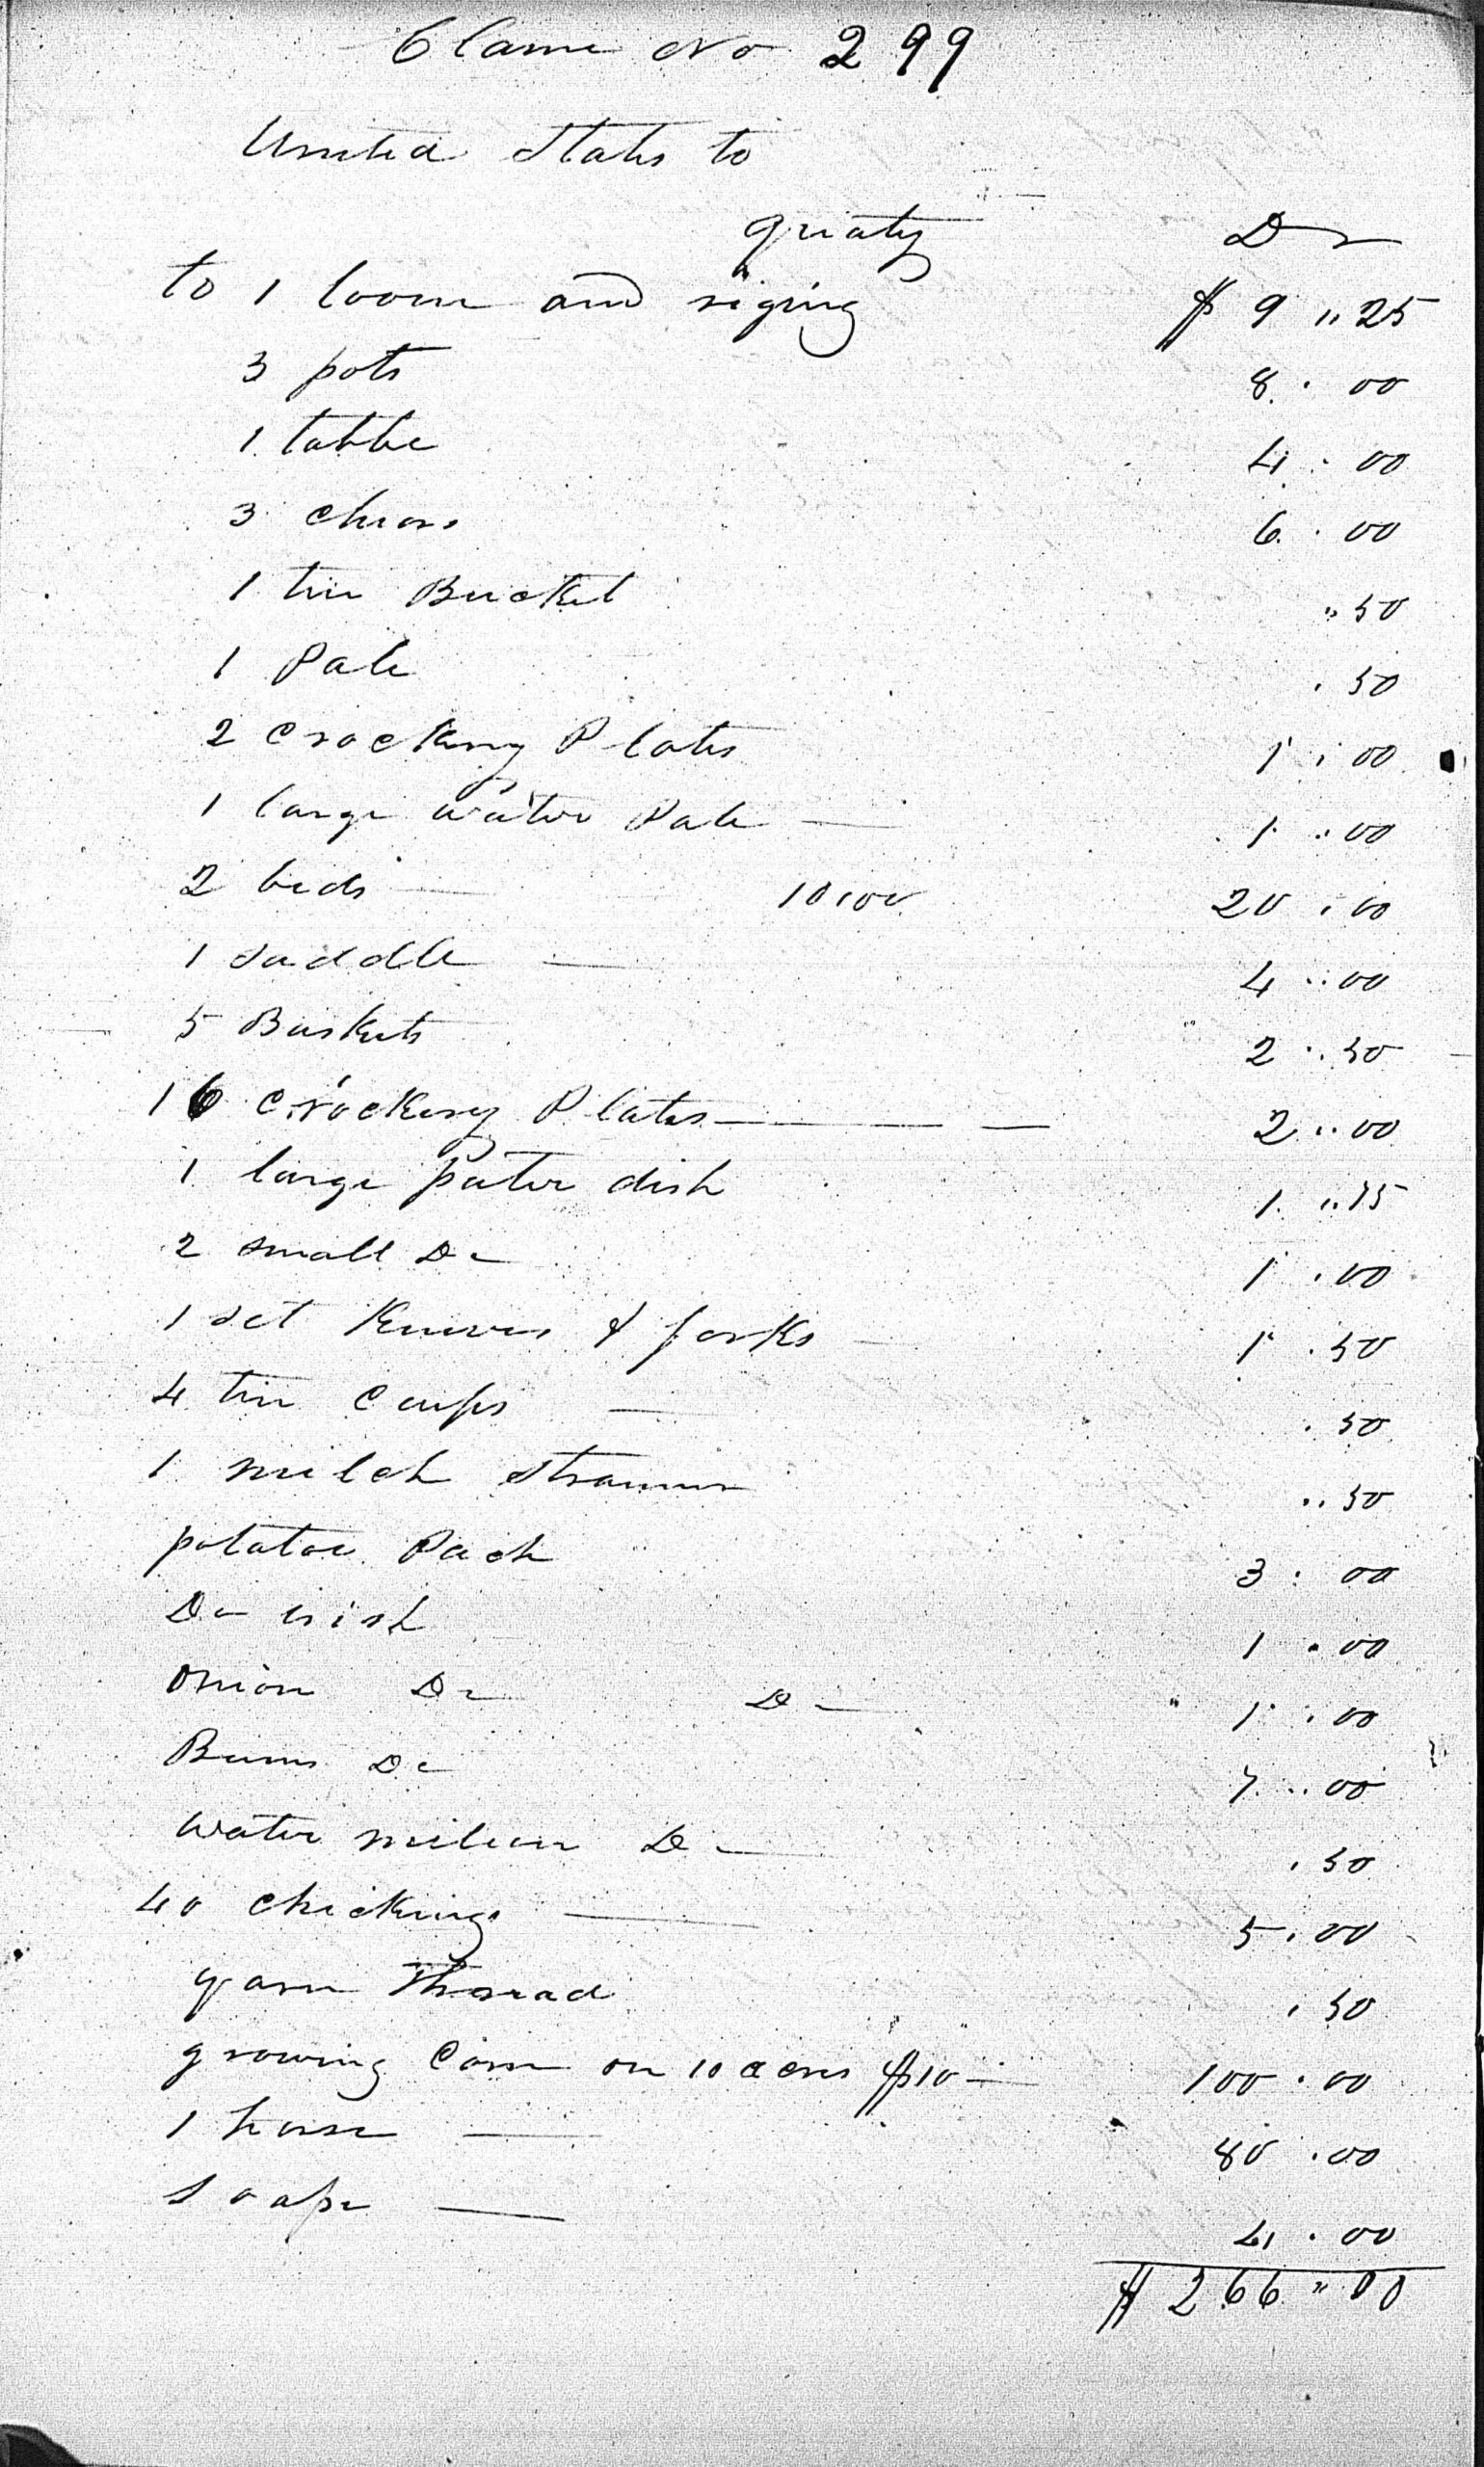 Claime No 299
United States to
Qriaty Dr
to 1 loom and riging $ 9 " 25
3 pots 8 . 00
1 table 4 . 00
3 chirs 6 . 00
1 tin Bucket " 50
1 Pale . 50
2 Crockery Plates 1 . 00
1 large water Pale — 1 .. 00
2 beds — 10.00 20 . 00
1 saddle — 4 .. 00
5 Baskets 2 .. 50
16 Crockery Plates — — 2 .. 00
1 large puter dish 1 .. 75
2 small Do 1 . 00
1 set Knives & forks — 1 . 50
4 tin Cups — . 50
1 milch Strainer .. 50
potatoe Pach 3 : 00
Do irish 1 . 00
Onion Do Do — " 1 . 00
Beans Do 7 .. 00
water milion Do — . 50
40 chickings — 5 . 00
yarn Thread . 50
growing Corn on 10 acres $10 — 100 . 00
1 horse — 80 . 00
Soape — 4 . 00
$ 266 " 00